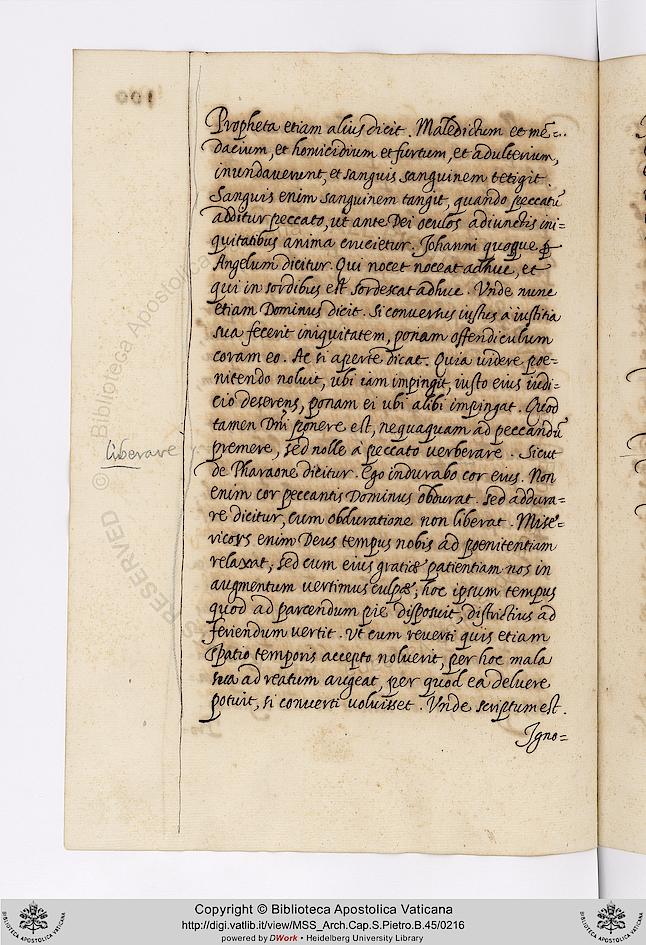 100
Propheta etiam alius dicit. Maledictum et mē=
dacium, et homicidium et furtum, et adulterium,
inundauerunt, et sanguis sanguinem tetigit.
Sanguis enim sanguinem tangit, quando peccatū
additur peccato, ut ante Dei oculos adiunctis ini=
quitatibus anima crucietur. Johanni quoque ꝑ
Angelum dicitur. Qui nocet noceat adhuc, et
qui in sordibus est sordescat adhuc. Vnde nunc
etiam Dominus dicit. Si conversus iustus à iustitia
sua fecerit iniquitatem, ponam offendiculum
coram eo. Ac si apertè dicat. Quia uidere poe=
nitendo noluit, ubi iam impingit, iusto eius iudi=
cio deserens, ponam ei ubi alibi impingat. Quod
tamen Dñi ponere est, nequaquam ad peccandū
premere, sed nolle à peccato verberare. Sicut
liberare
de Pharaone dicitur. Ego indurabo cor eius. Non
enim cor peccantis Dominus obdurat. Sed addura=
re dicitur, cum obduratione non liberat. Mise=
ricors enim Deus tempus nobis ad poenitentiam
relaxat, sed cum eius gratiæ patientiam nos in
augmentum vertimus culpæ, hoc ipsum tempus
quod ad parcendum pie disposuit, districtius ad
feriendum vertit. Vt cum reverti quis etiam
spatio temporis accepto noluerit, per hoc mala
sua ad reatum augeat, per quod ea deluere
potuit, si converti voluisset. Vnde scriptum est.
Igno=
© Biblioteca Apostolica
RESERVED
Copyright © Biblioteca Apostolica Vaticana
http://digi.vatlib.it/view/MSS_Arch.Cap.S.Pietro.B.45/0216
powered by DWork • Heidelberg University Library